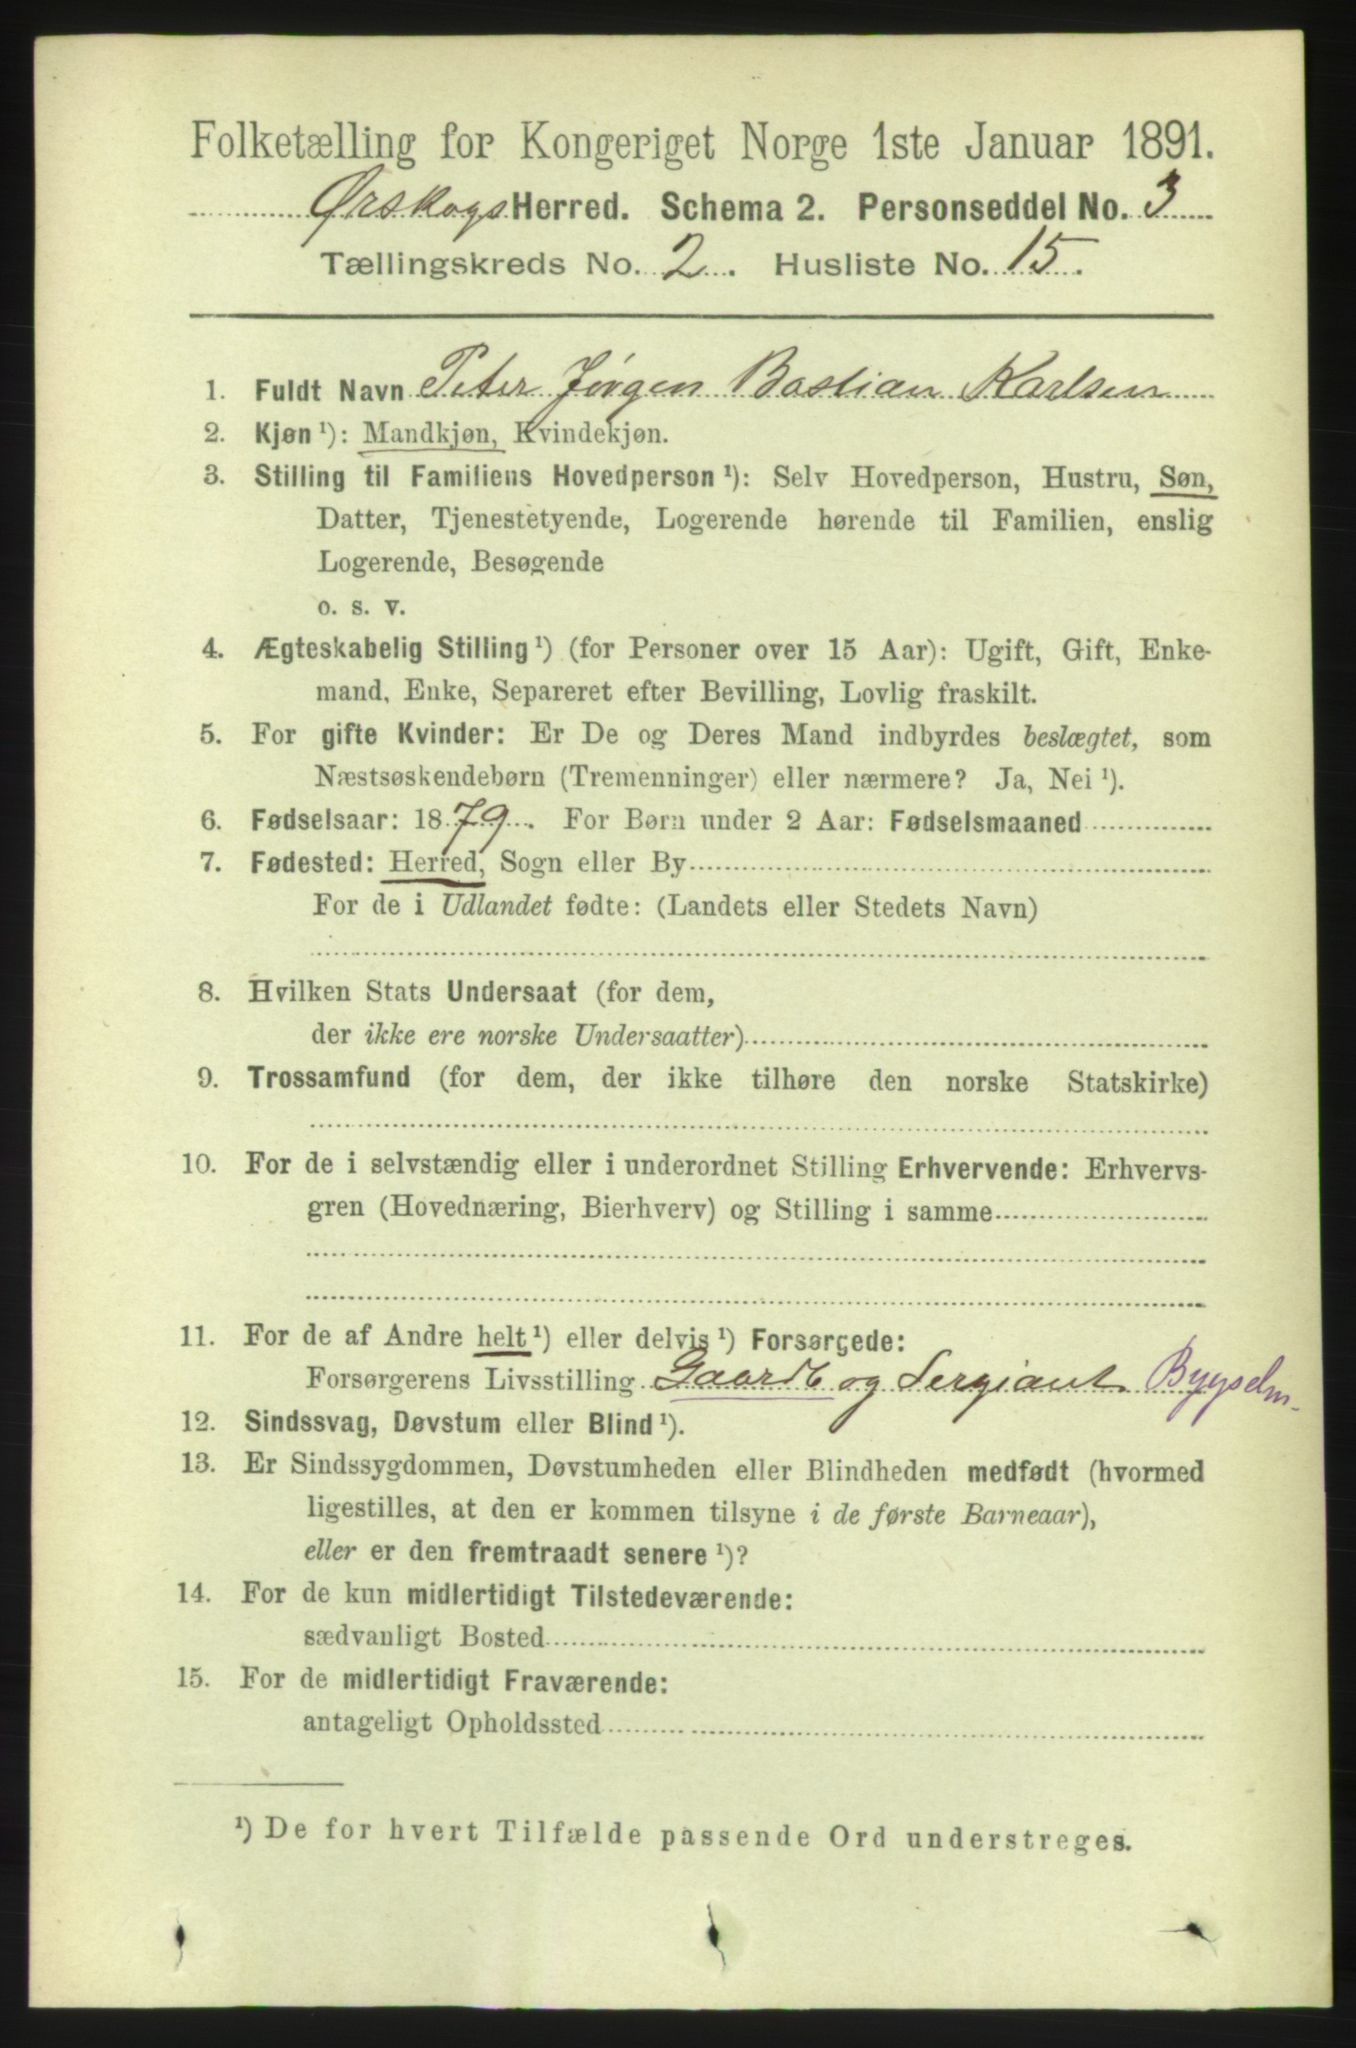 Folketælling for Kongeriget Norge 1ste Januar 1891.
Ørskogs Herred. Schema 2. Personseddel No. 3
Tællingskreds No. 2. Husliste No. 15.
1. Fuldt Navn Peter Jørgen Bastian Karlsen
2. Kjøn ¹): Mandkjøn, Kvindekjøn.
3. Stilling til Familiens Hovedperson ¹): Selv Hovedperson, Hustru, Søn,
Datter, Tjenestetyende, Logerende hørende til Familien, enslig
Logerende, Besøgende
o. s. v.
4. Ægteskabelig Stilling ¹) (for Personer over 15 Aar): Ugift, Gift, Enke-
mand, Enke, Separeret efter Bevilling, Lovlig fraskilt.
5. For gifte Kvinder: Er De og Deres Mand indbyrdes beslægtet, som
Næstsøskendebørn (Tremenninger) eller nærmere? Ja, Nei ¹).
6. Fødselsaar: 1879. For Børn under 2 Aar: Fødselsmaaned
7. Fødested: Herred, Sogn eller By
For de i Udlandet fødte: (Landets eller Stedets Navn)
8. Hvilken Stats Undersaat (for dem,
der ikke ere norske Undersaatter)
9. Trossamfund (for dem, der ikke tilhøre den norske Statskirke)
10. For de i selvstændig eller i underordnet Stilling Erhvervende: Erhvervs-
gren (Hovednæring, Bierhverv) og Stilling i samme
11. For de af Andre helt ¹) eller delvis ¹) Forsørgede:
Forsørgerens Livsstilling Gaardb og Sergiant Bygselm.
12. Sindssvag, Døvstum eller Blind ¹).
13. Er Sindssygdommen, Døvstumheden eller Blindheden medfødt (hvormed
ligestilles, at den er kommen tilsyne i de første Barneaar),
eller er den fremtraadt senere ¹)?
14. For de kun midlertidigt Tilstedeværende:
sædvanligt Bosted
15. For de midlertidigt Fraværende:
antageligt Opholdssted
¹) De for hvert Tilfælde passende Ord understreges.